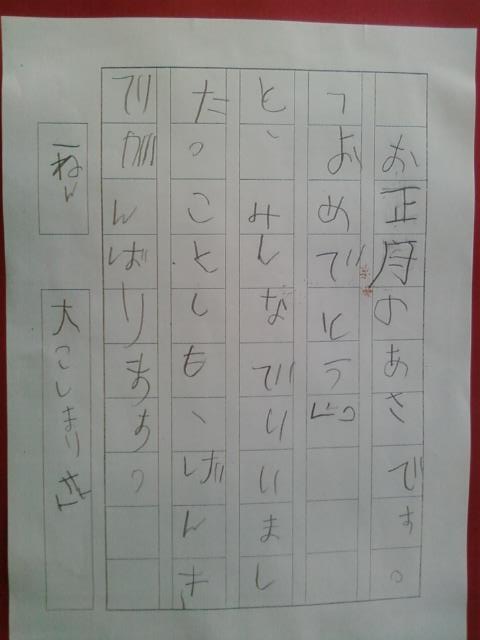 お正月のあさです。
「おめでとう」
と、みんなでいいまし
た。ことしも、げんき
でがんばります。
一ねん
大こしまりさ